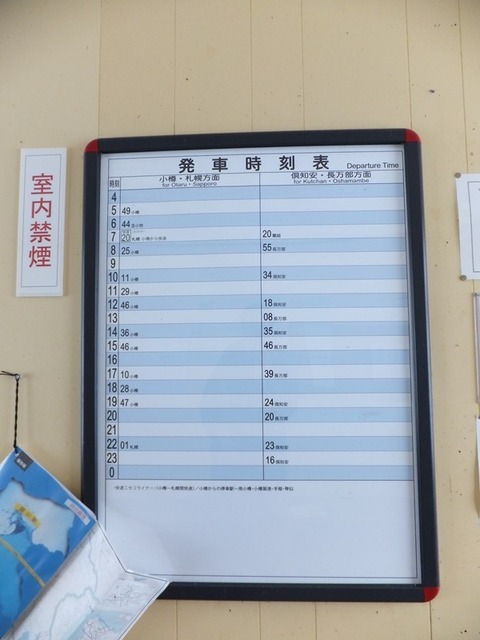 室内禁煙
発車時刻表 Departure Time
時刻 小樽・札幌方面 倶知安・長万部方面
for Otaru・Sapporo for Kutchan・Oshamambe
4
5 49小樽
6 44
7 20札幌 小樽から快速 20
8 25小樽 55長万部
9
10 11小樽 34倶知安
11 29小樽
12 46小樽 18倶知安
13 08長万部
14 36小樽 35倶知安
15 46小樽 46長万部
16
17 10小樽 39長万部
18 28小樽
19 47小樽 24倶知安
20 20長万部
21
22 01札幌 23倶知安
23 16倶知安
0